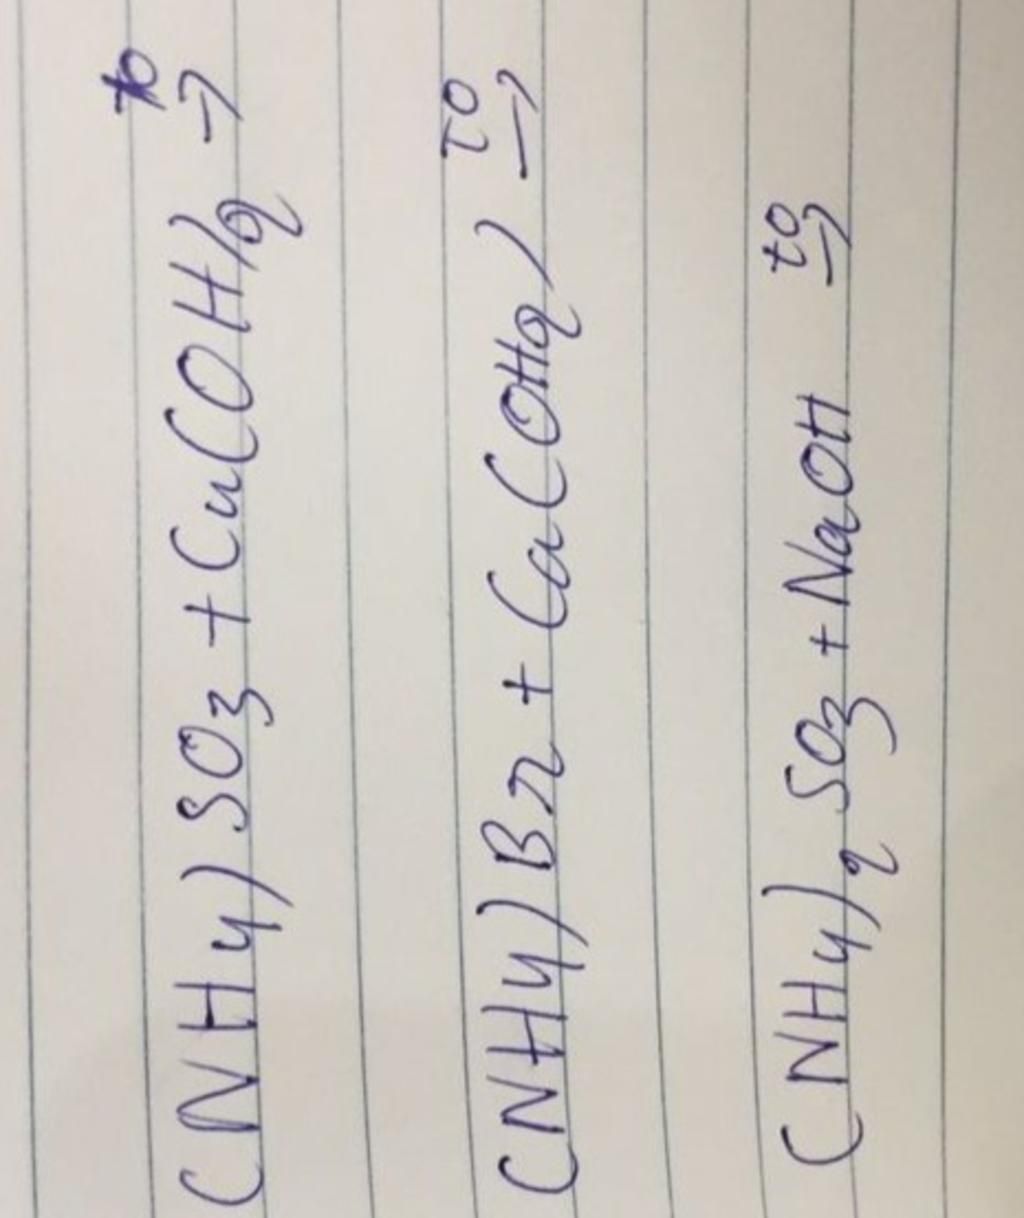 (NH4)SO3 + Cu(OH)2 t0 →
(NH4)Br + Ca(OH2) t0 →
(NH4)2 SO3 + NaOH t0 →